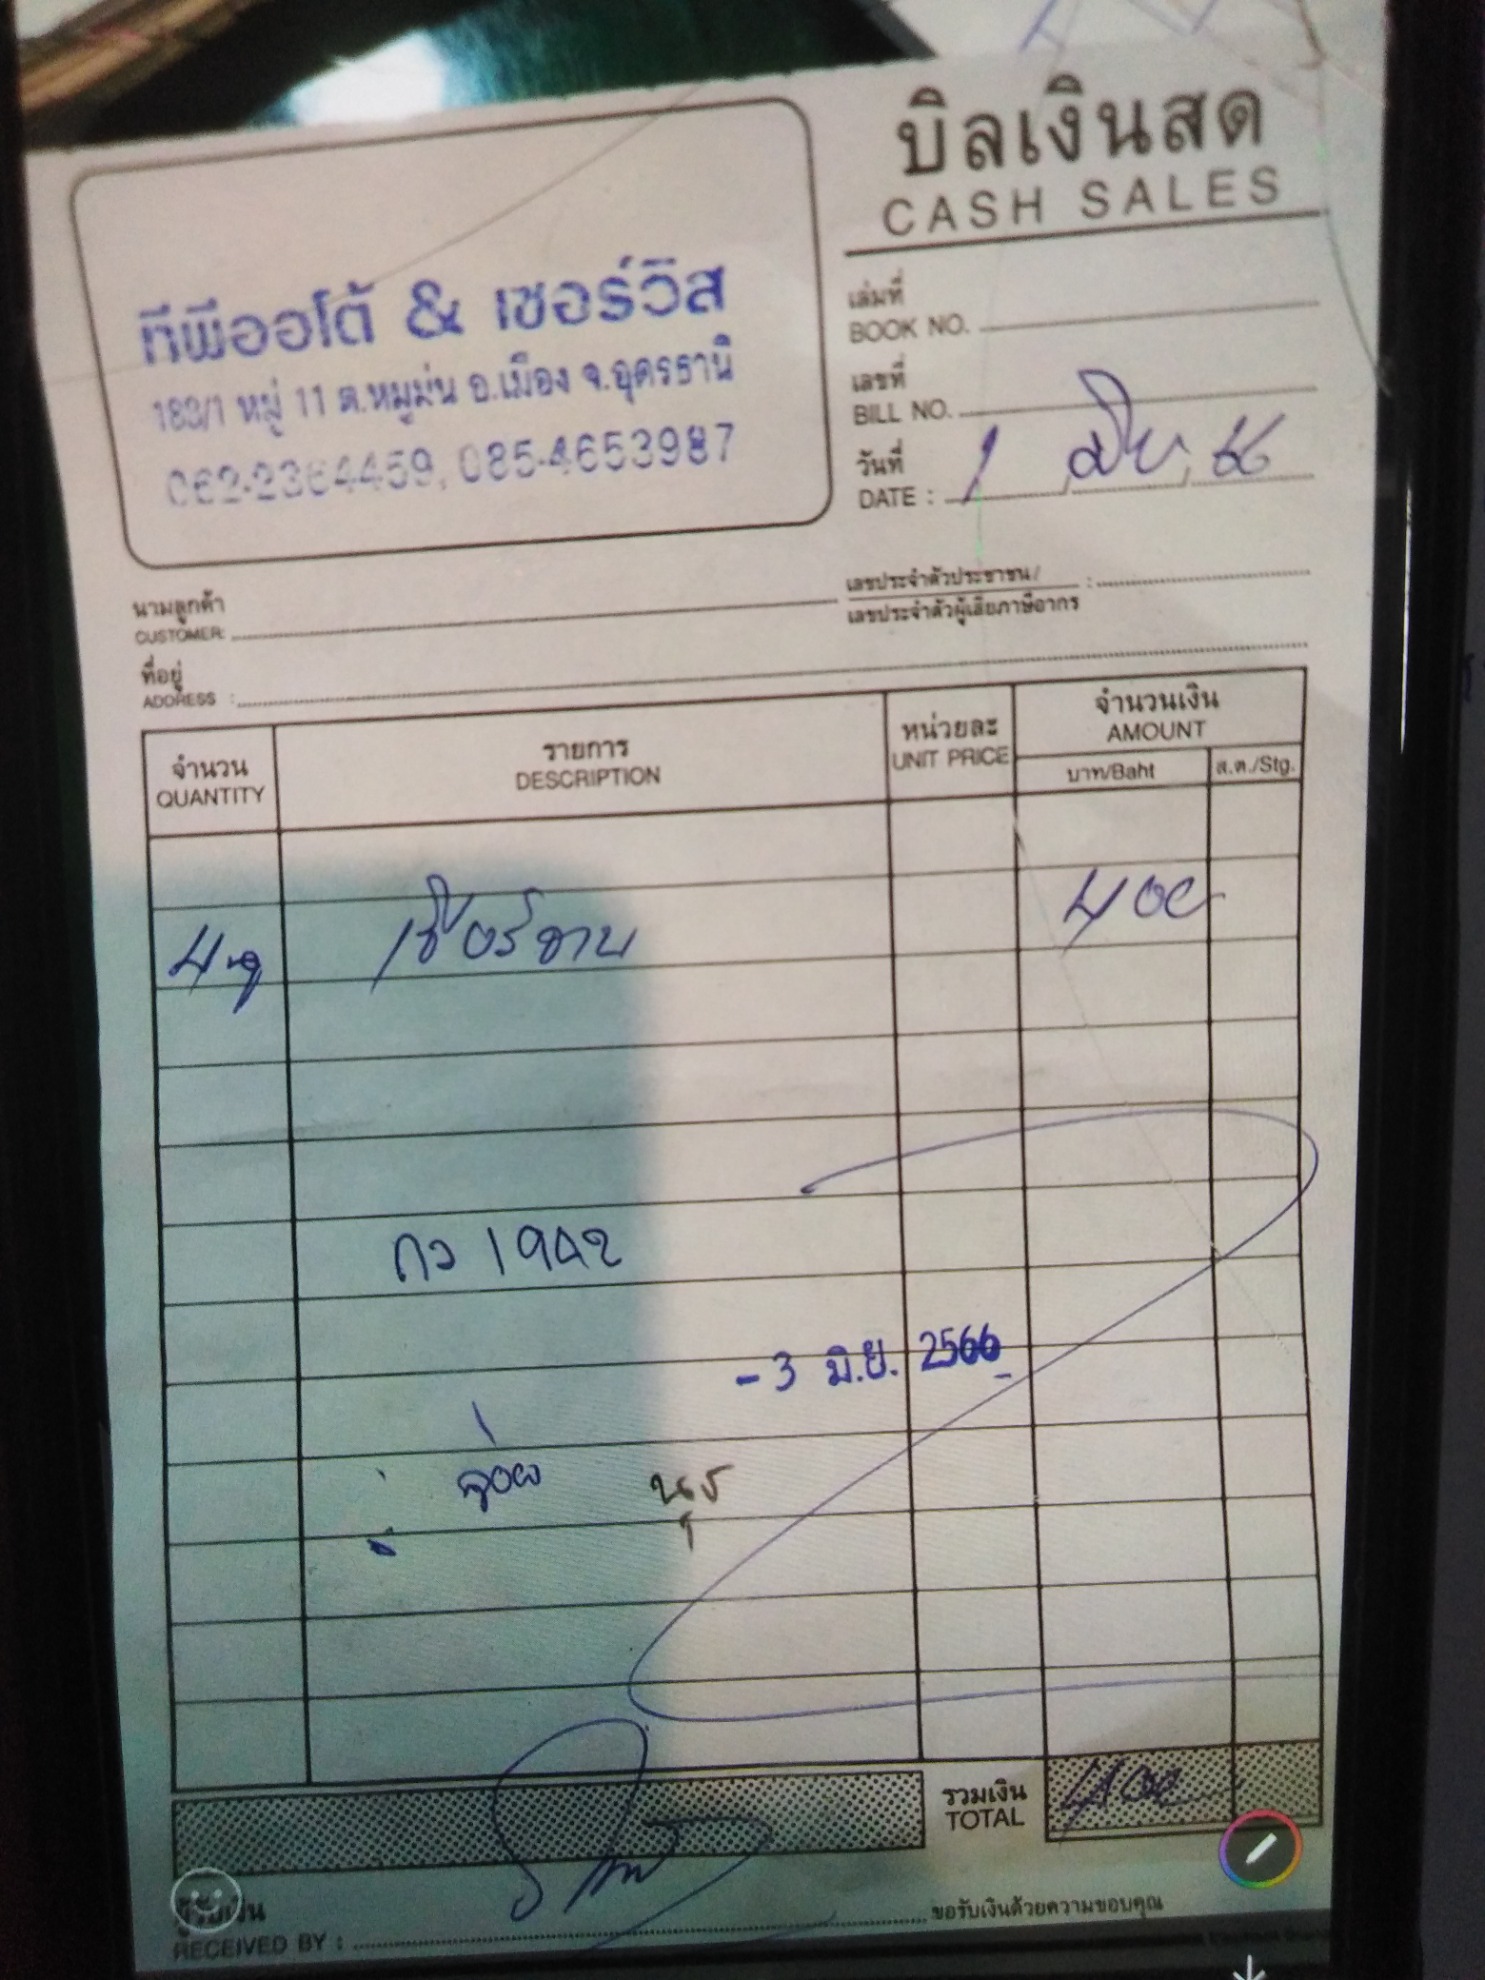 บิลเงินสด
CASH SALES
ทีพีออโต้ & เซอร์วิส
183/1 หมู่ 11 ต.หมูม่น อ.เมือง จ.อุดรธานี
062-2364459, 085-4653987
เล่มที่
BOOK NO.
เลขที่
BILL NO.
วันที่
DATE : 1 มิย. 66
นามลูกค้า
CUSTOMER:
เลขประจำตัวประชาชน/ :
เลขประจำตัวผู้เสียภาษีอากร
ที่อยู่
ADDRESS :
จำนวน
QUANTITY
รายการ
DESCRIPTION
หน่วยละ
UNIT PRICE
จำนวนเงิน
AMOUNT
บาท/Baht ส.ต./Stg.
400
กว 1942
-3 มิ.ย. 2566
รวมเงิน
TOTAL
400
ผู้รับเงิน
RECEIVED BY :
ขอรับเงินด้วยความขอบคุณ